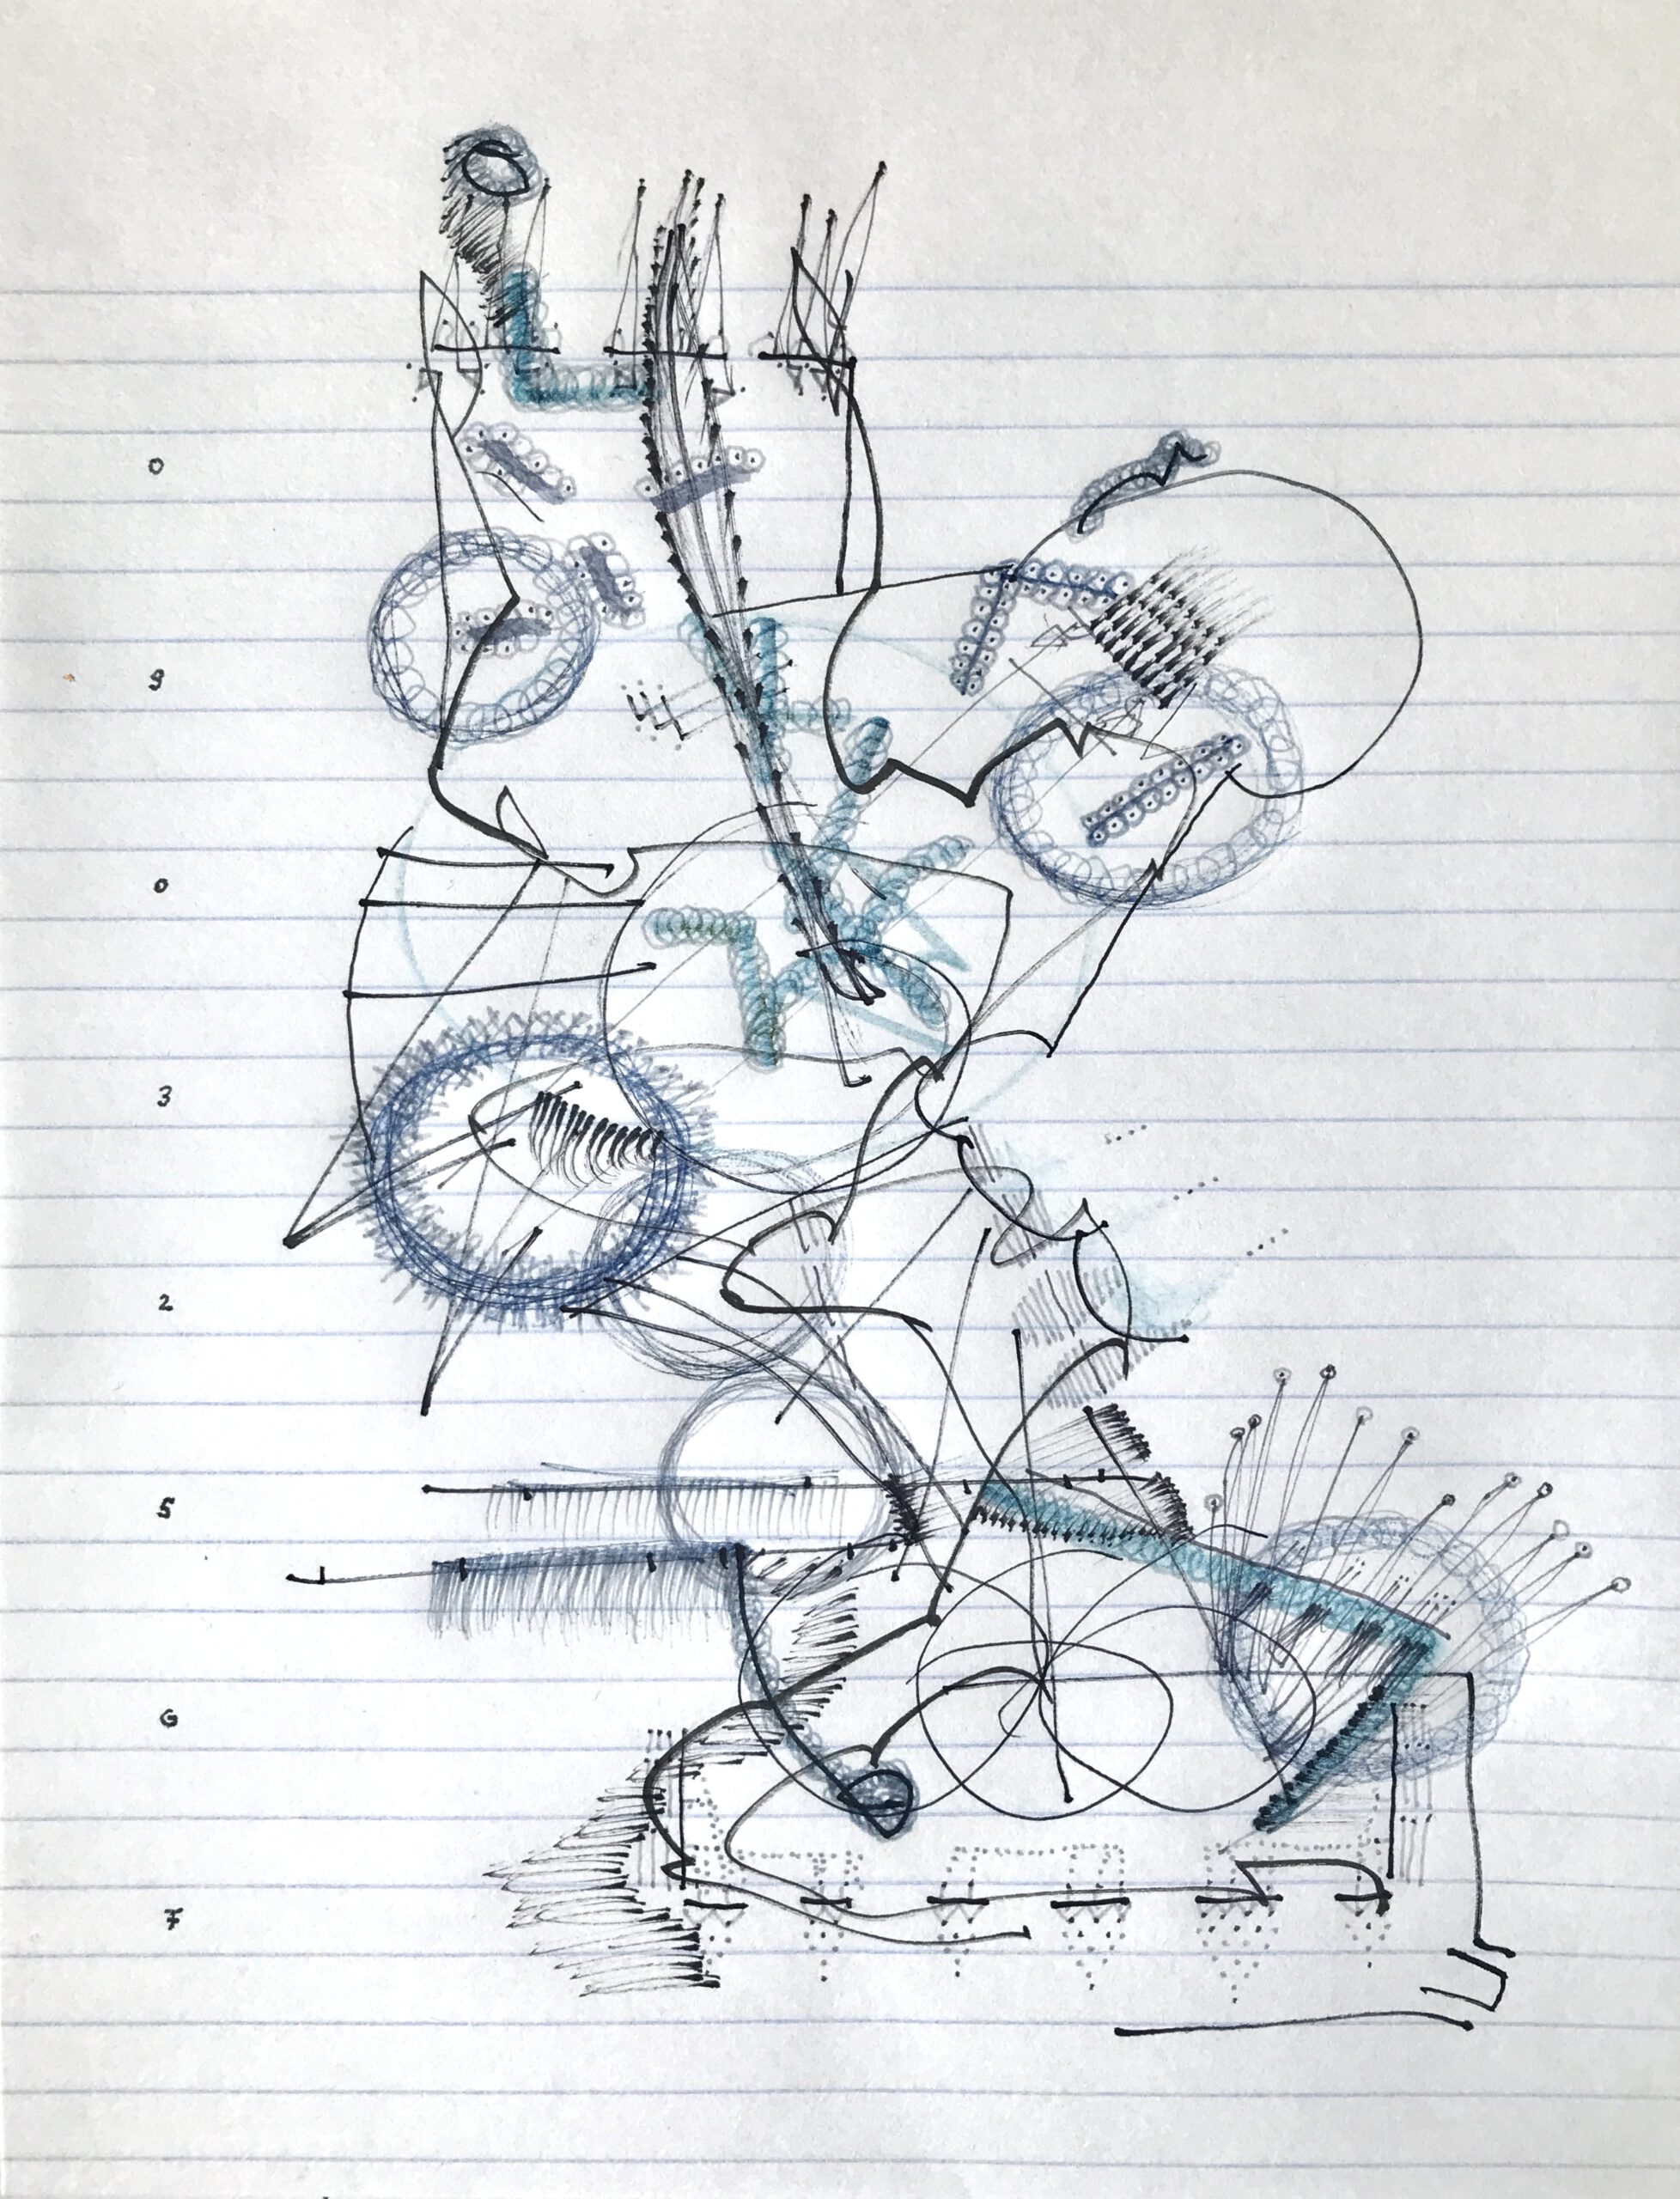 0
9
0
3
2
5
6
7